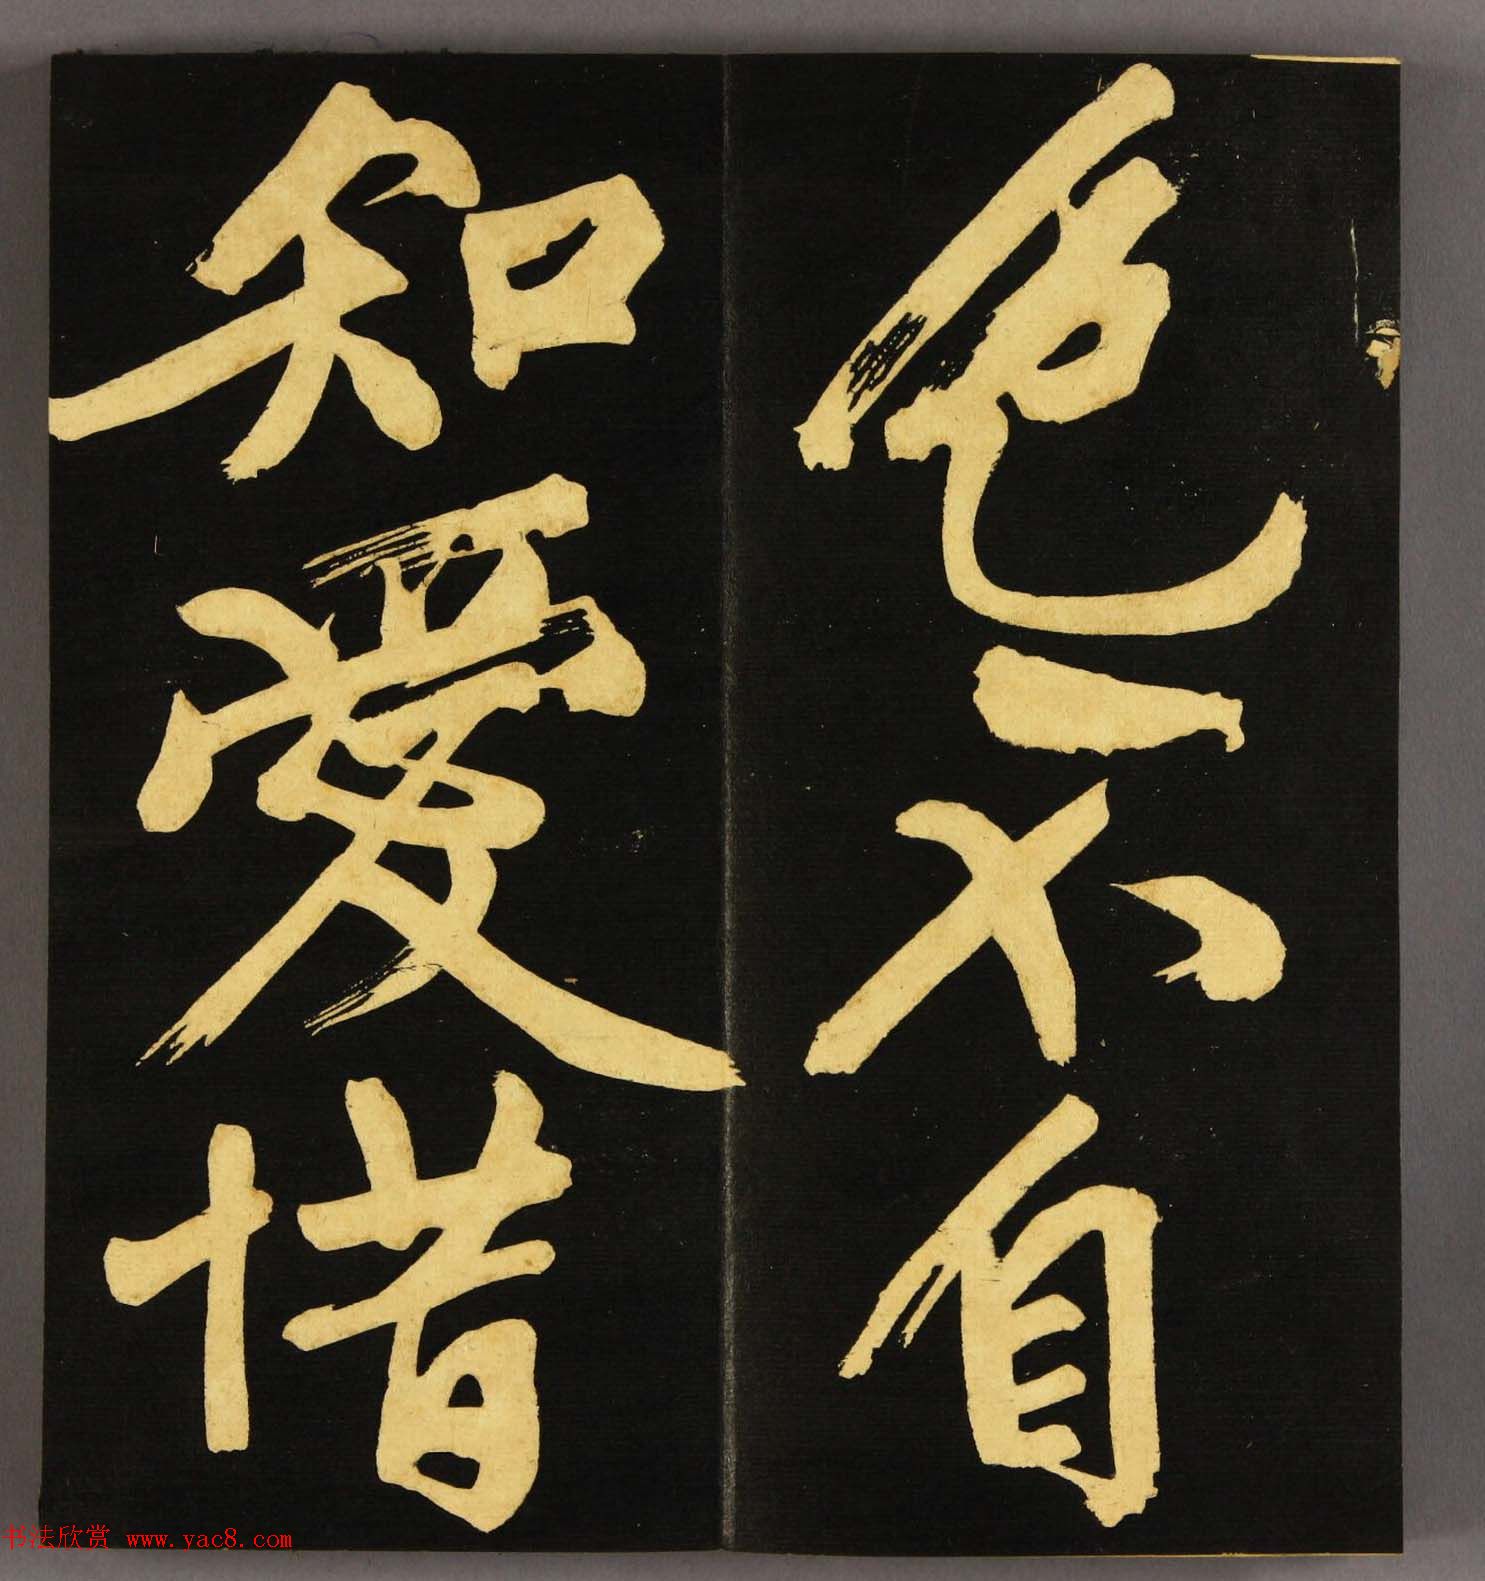 色不自
知愛惜
书法欣赏 www.yac8.com